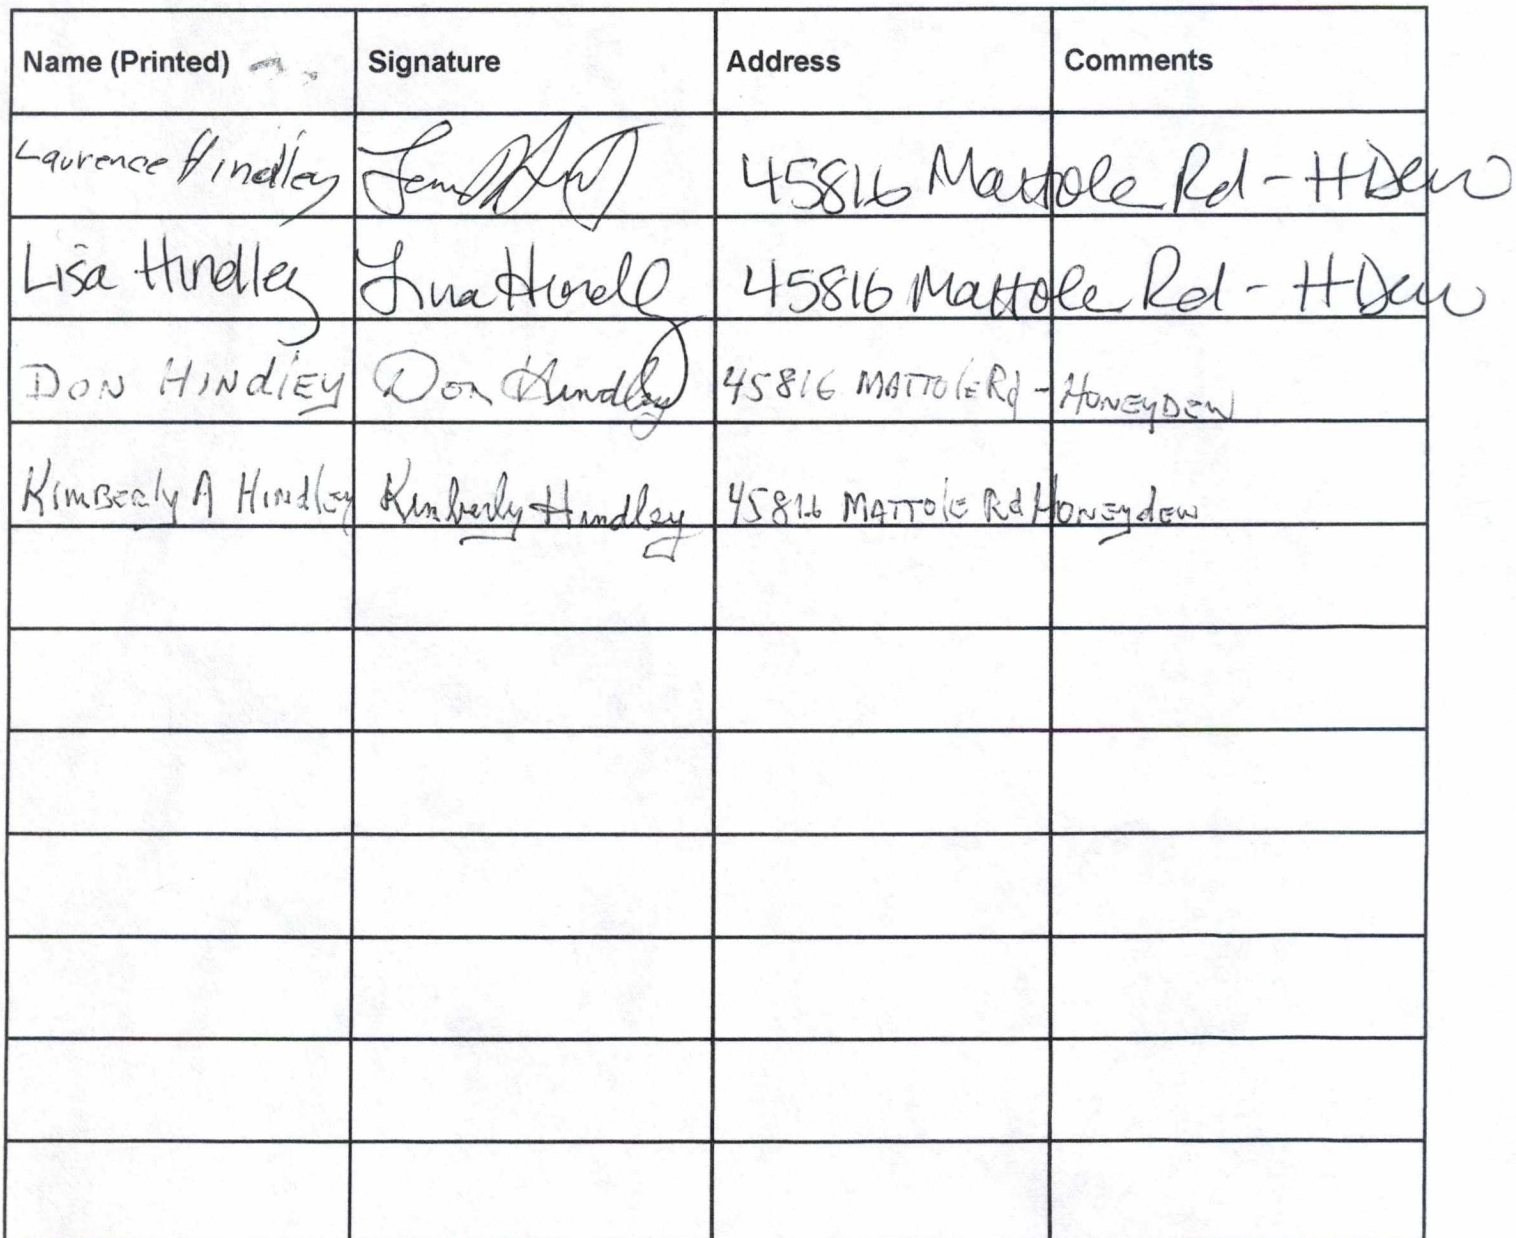 Name (Printed) Signature Address Comments
Laurence Hindley 45816 Mattole Rd - HDew
Lisa Hindley Lisa Hindley 45816 Mattole Rd - HDew
DON HINDLEY Don Hindley 45816 MATTOLE Rd - HONEYDEW
KIMBERLY A HINDLEY Kimberly Hindley 45816 MATTOLE Rd HONEYDEW